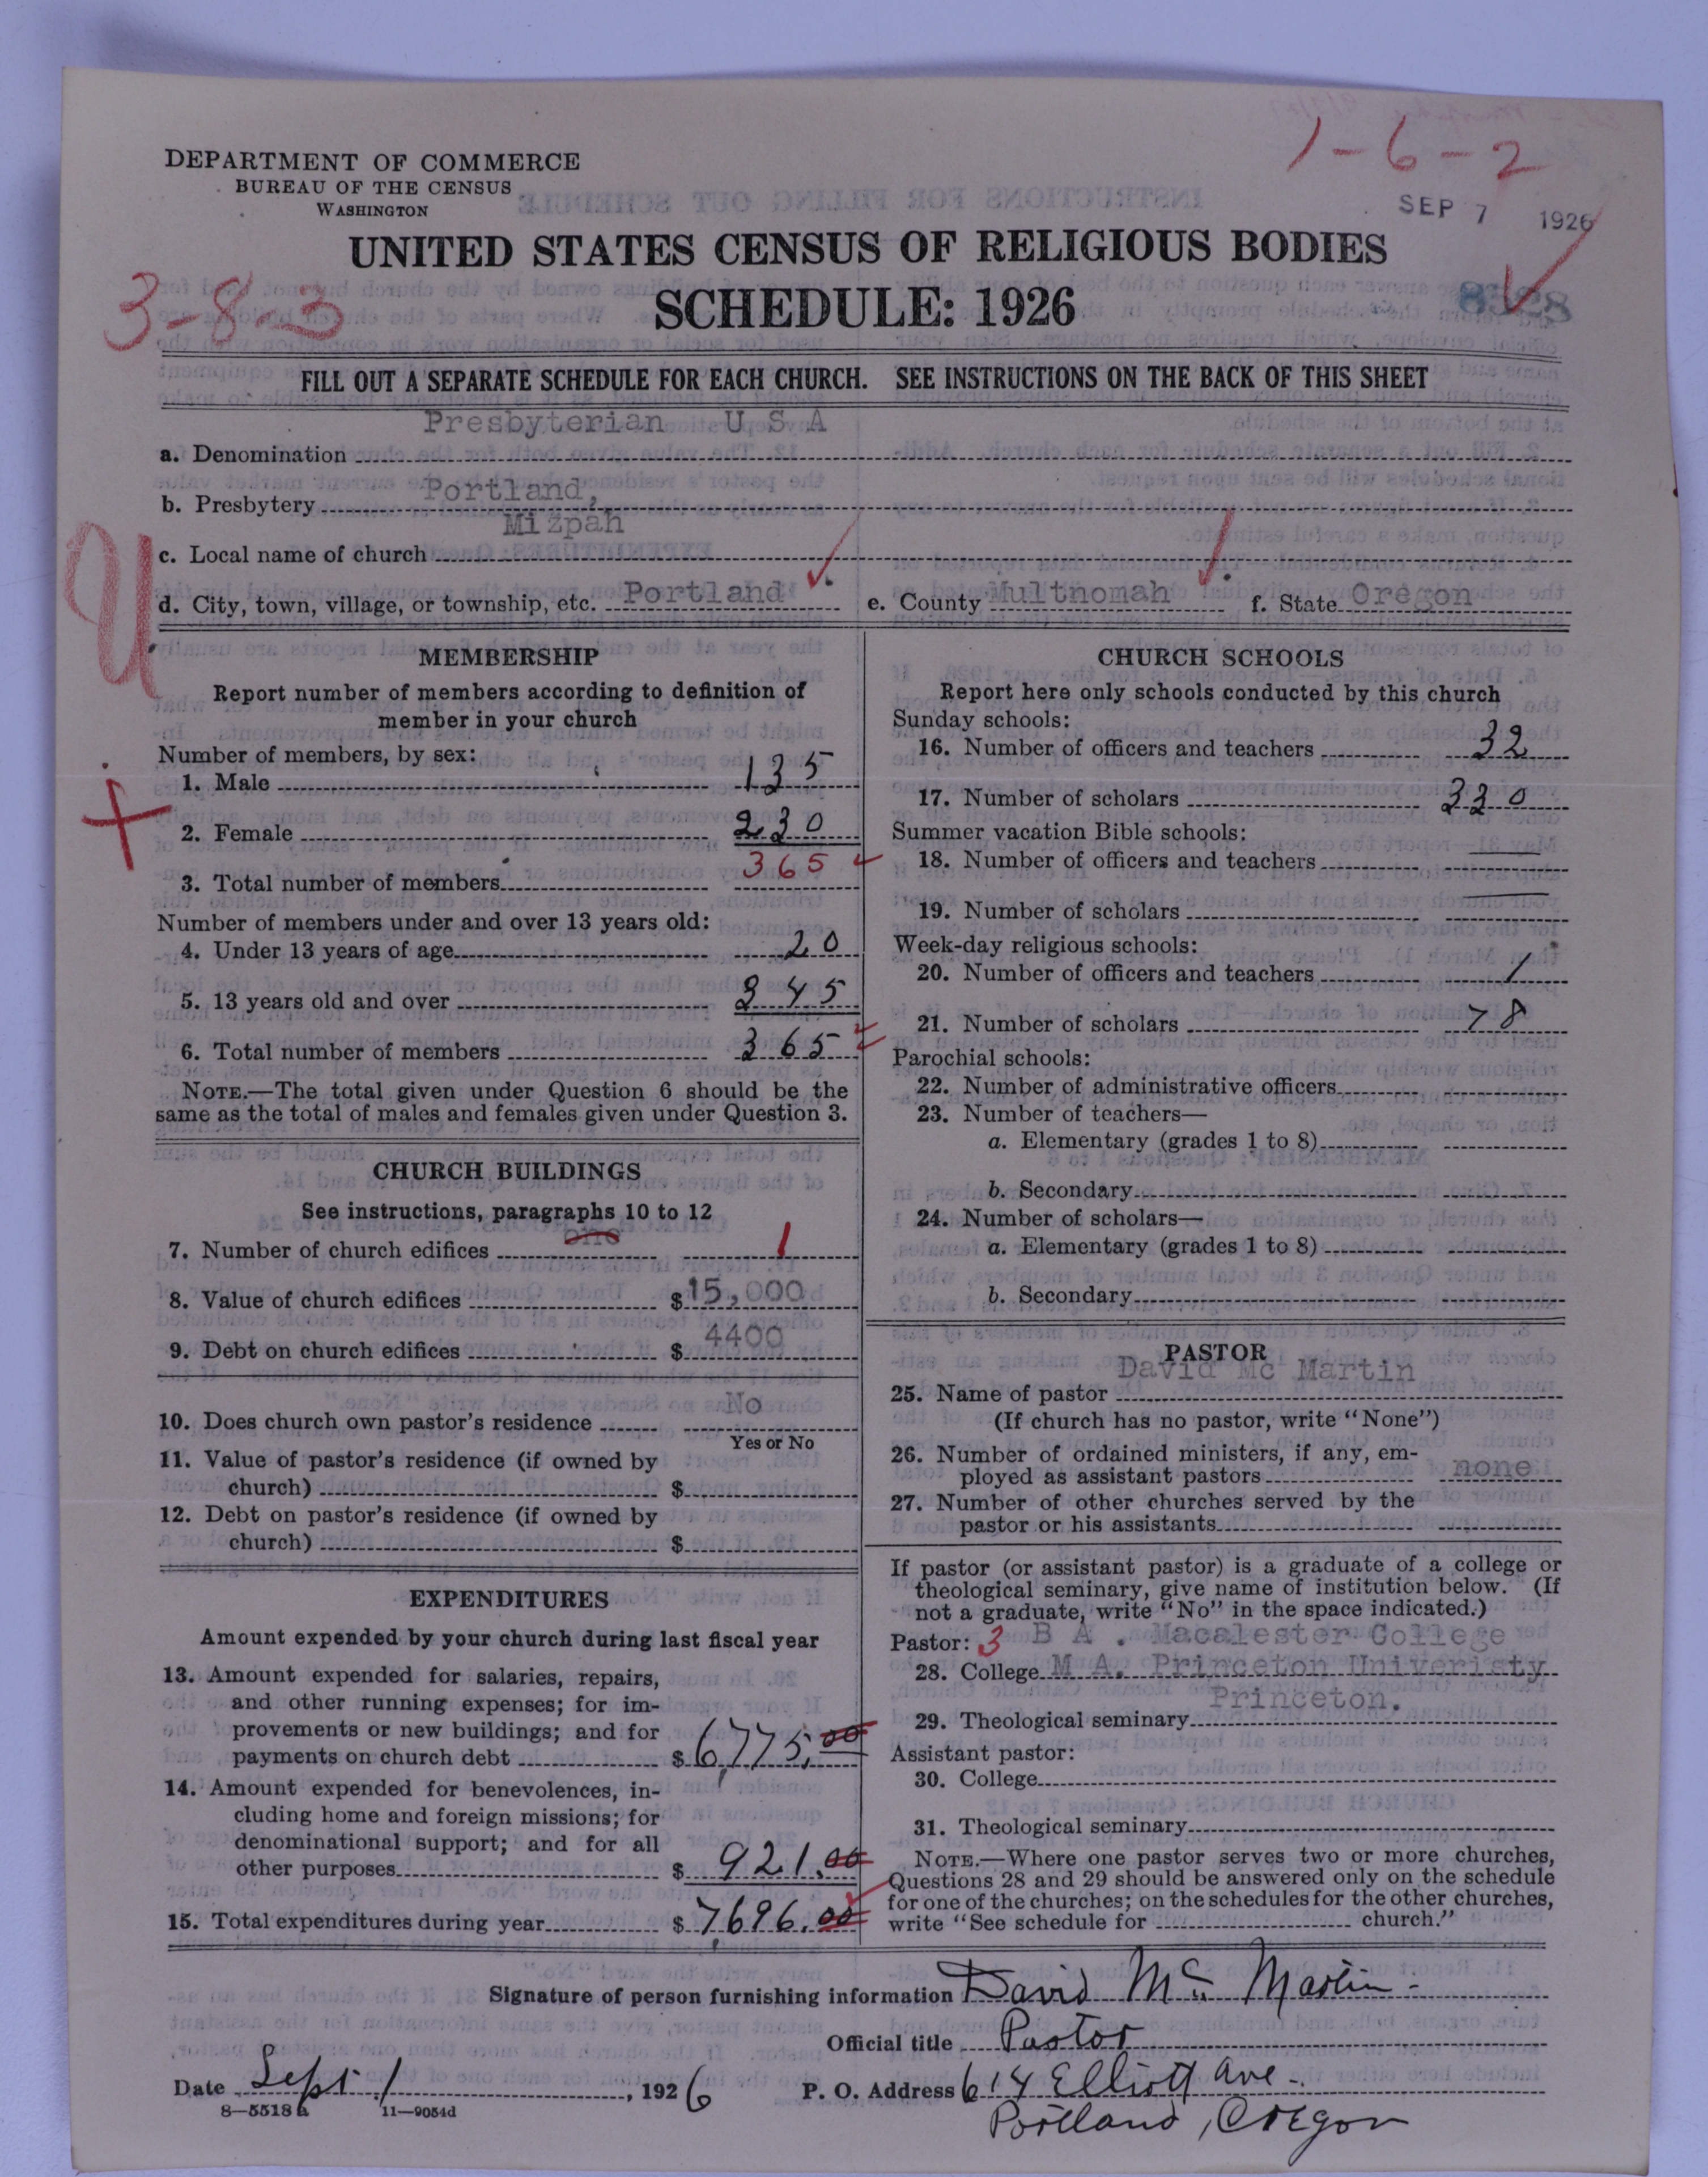 1-6-2
DEPARTMENT OF COMMERCE
BUREAU OF THE CENSUS
WASHINGTON
SEP 7 1926
UNITED STATES CENSUS OF RELIGIOUS BODIES
3-8-3
SCHEDULE: 1926
8328
FILL OUT A SEPARATE SCHEDULE FOR EACH CHURCH. SEE INSTRUCTIONS ON THE BACK OF THIS SHEET
a. Denomination Presbyterian U S A
b. Presbytery Portland,
c. Local name of church Mizpah
d. City, town, village, or township, etc. Portland. e. County Multnomah. f. State Oregon
MEMBERSHIP
Report number of members according to definition of
member in your church
Number of members, by sex:
1. Male 135
2. Female 230
3. Total number of members 365
Number of members under and over 13 years old:
4. Under 13 years of age 20
5. 13 years old and over 345
6. Total number of members 365
NOTE.—The total given under Question 6 should be the
same as the total of males and females given under Question 3.
CHURCH BUILDINGS
See instructions, paragraphs 10 to 12
7. Number of church edifices one 1
8. Value of church edifices $15,000
9. Debt on church edifices $4400
10. Does church own pastor's residence No
Yes or No
11. Value of pastor's residence (if owned by
church) $
12. Debt on pastor's residence (if owned by
church) $
EXPENDITURES
Amount expended by your church during last fiscal year
13. Amount expended for salaries, repairs,
and other running expenses; for im-
provements or new buildings; and for
payments on church debt $6,775.00
14. Amount expended for benevolences, in-
cluding home and foreign missions; for
denominational support; and for all
other purposes $921.00
15. Total expenditures during year $7,696.00
CHURCH SCHOOLS
Report here only schools conducted by this church
Sunday schools:
16. Number of officers and teachers 32
17. Number of scholars 330
Summer vacation Bible schools:
18. Number of officers and teachers
19. Number of scholars
Week-day religious schools:
20. Number of officers and teachers 1
21. Number of scholars 78
Parochial schools:
22. Number of administrative officers
23. Number of teachers—
a. Elementary (grades 1 to 8)
b. Secondary
24. Number of scholars—
a. Elementary (grades 1 to 8)
b. Secondary
PASTOR
25. Name of pastor David Mc Martin
(If church has no pastor, write "None")
26. Number of ordained ministers, if any, em-
ployed as assistant pastors none
27. Number of other churches served by the
pastor or his assistants
If pastor (or assistant pastor) is a graduate of a college or
theological seminary, give name of institution below. (If
not a graduate, write "No" in the space indicated.)
Pastor: 3 B A . Macalester College
28. College M A. Princeton Univeristy
29. Theological seminary Princeton.
Assistant pastor:
30. College
31. Theological seminary
NOTE.—Where one pastor serves two or more churches,
Questions 28 and 29 should be answered only on the schedule
for one of the churches; on the schedules for the other churches,
write "See schedule for church."
Signature of person furnishing information David Mc Martin
Official title Pastor
Date Sept 1, 1926 P. O. Address 614 Elliott Ave.
8-5518 a 11-9054d
Portland, Oregon